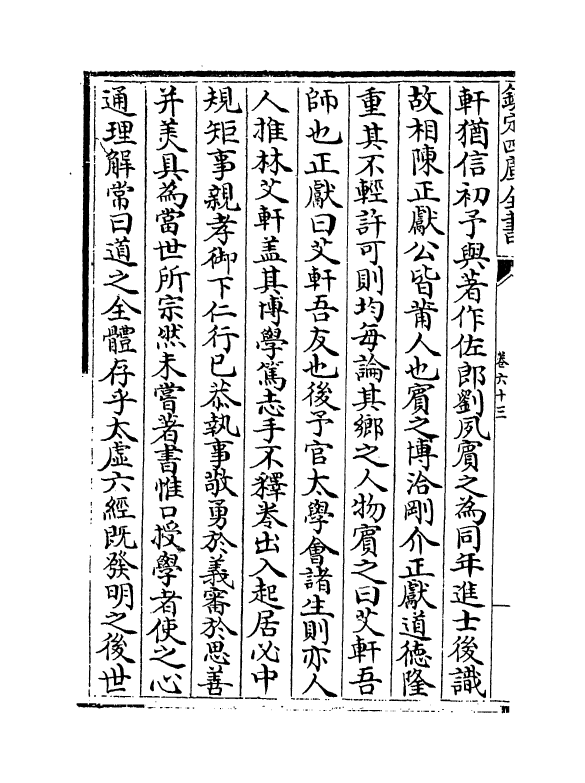 欽定四庫全書
卷六十三
軒猶信初予與著作佐郎劉夙賔之為同年進士後識
故相陳正獻公皆莆人也賔之博洽剛介正獻道德隆
重其不輕許可則均每論其鄉之人物賔之曰艾軒吾
師也正獻曰艾軒吾友也後予官太學會諸生則亦人
人推林艾軒盖其博學篤志手不釋卷出入起居必中
規矩事親孝御下仁行已恭執事敬勇於義審於思善
并美具為當世所宗然未嘗著書惟口授學者使之心
通理解常曰道之全體存乎太虚六經既發明之後世